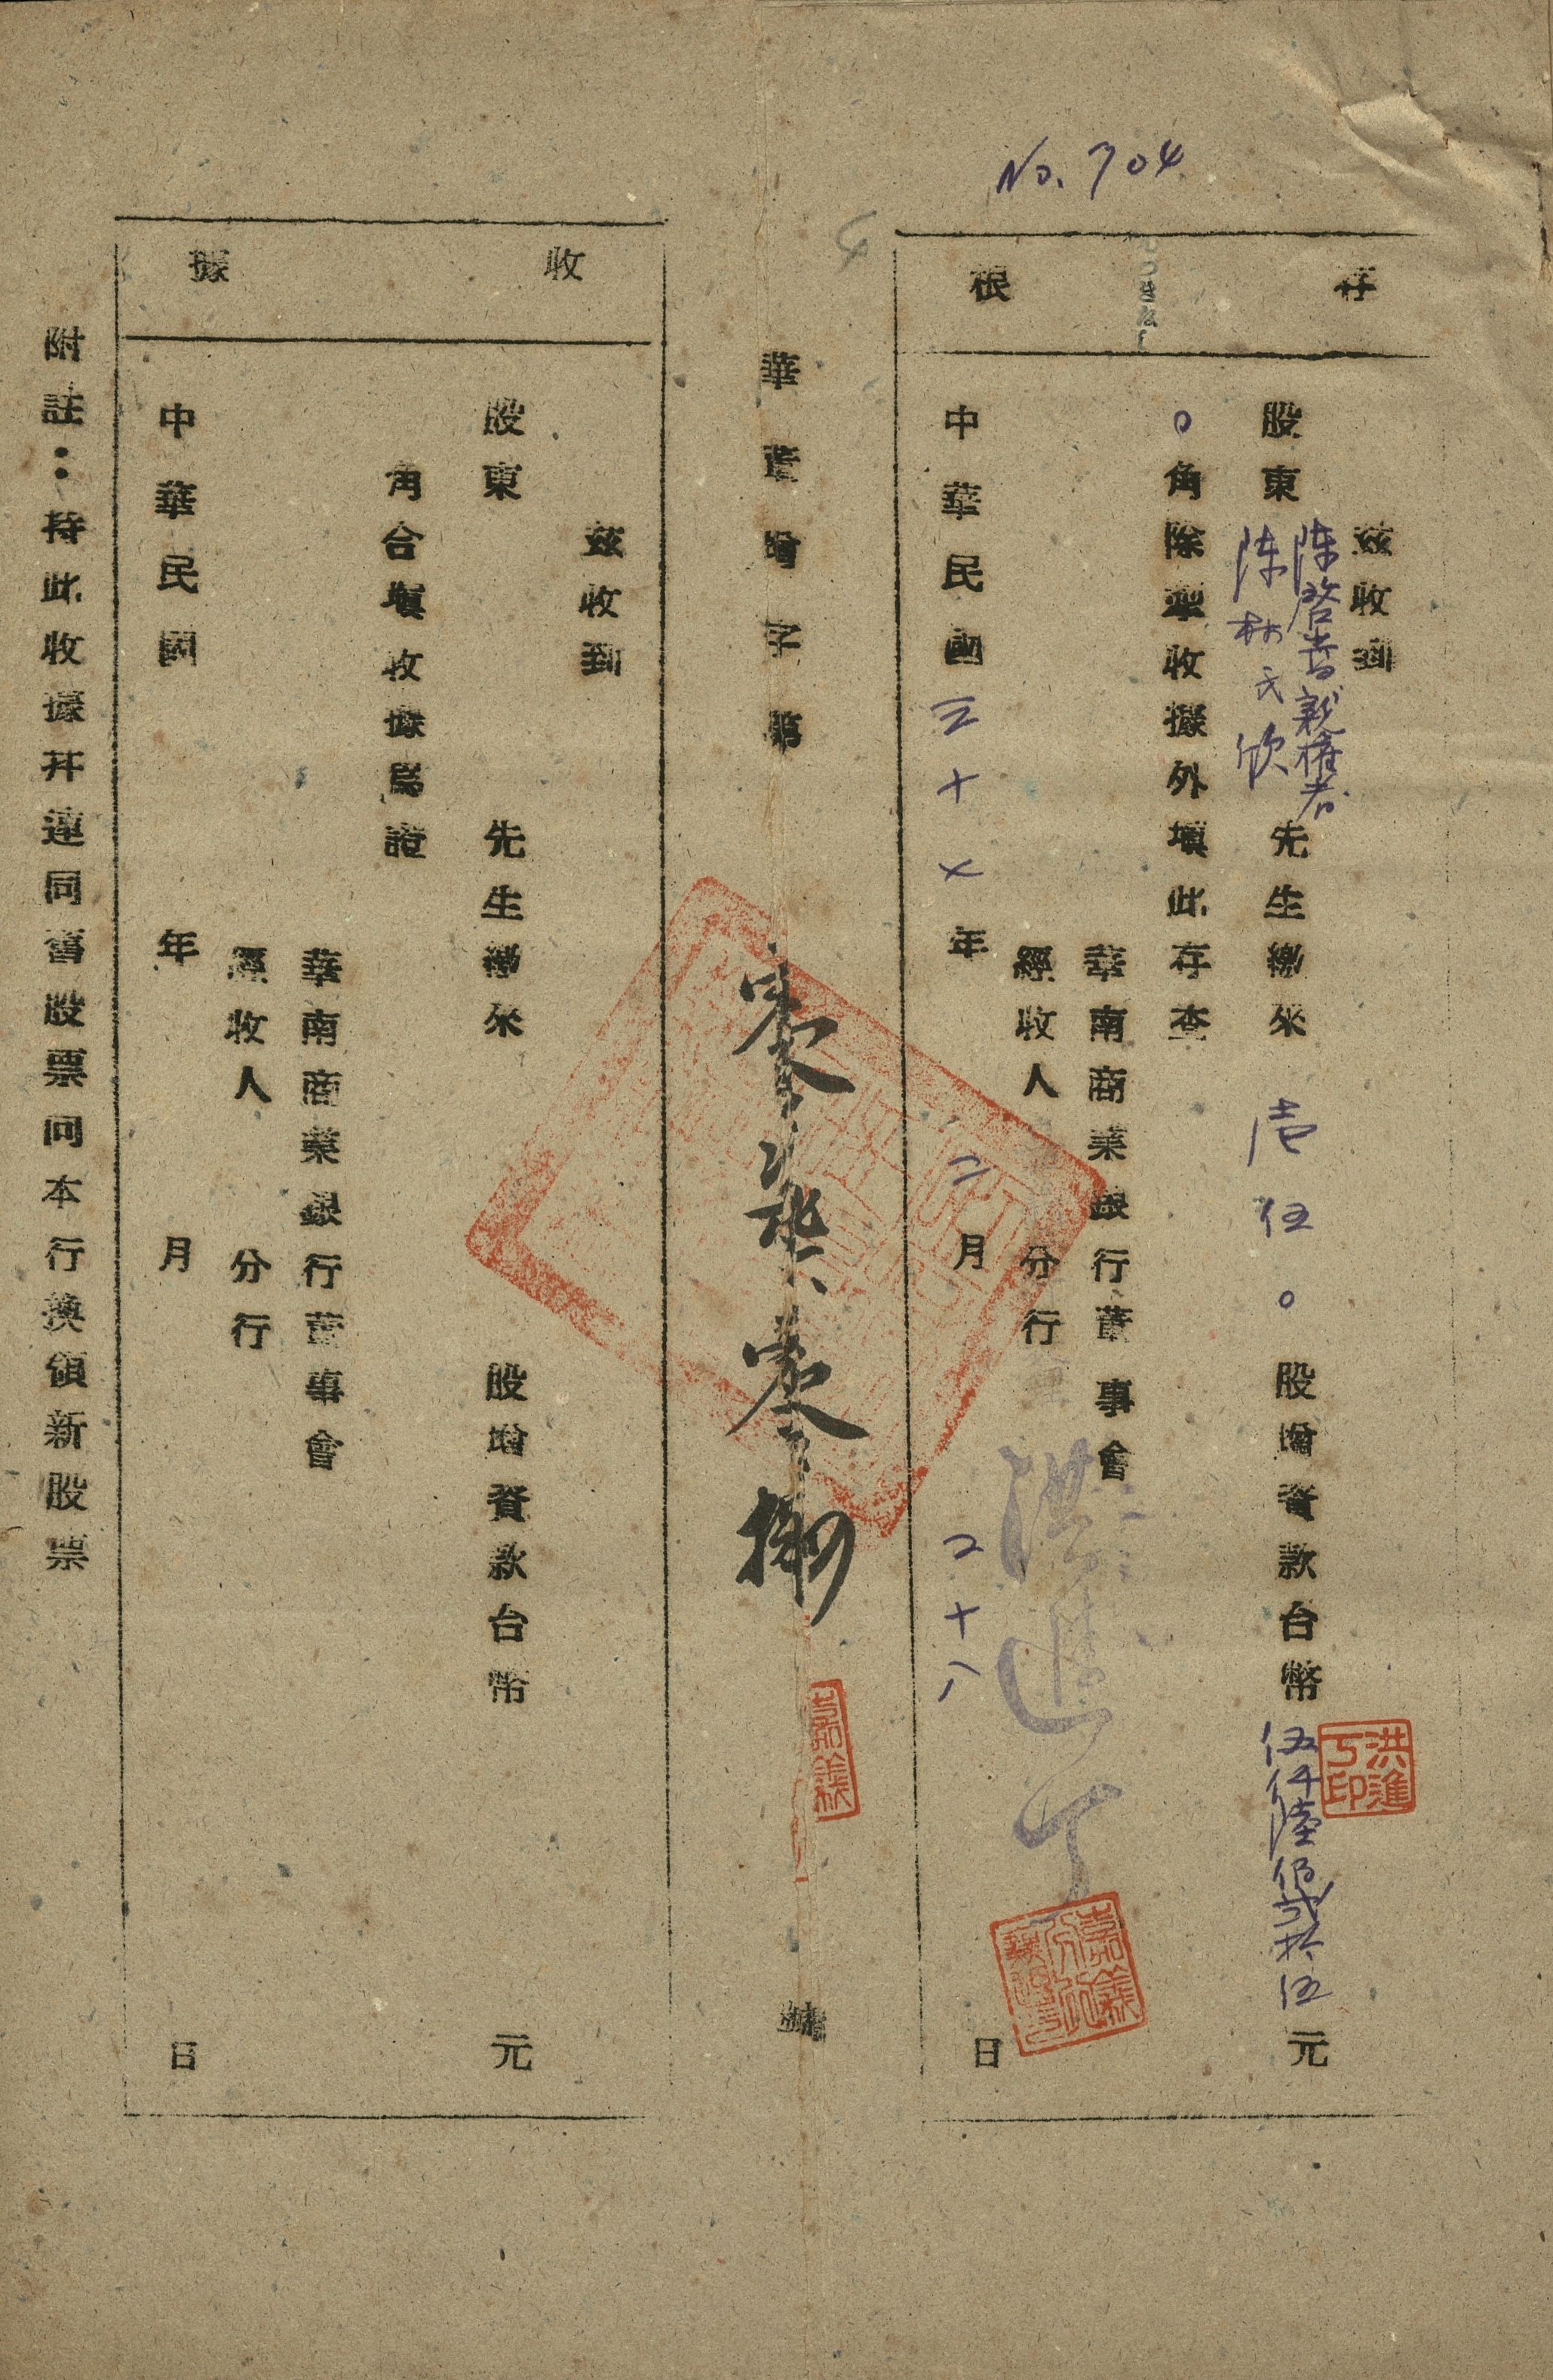 No. 704
存根
茲收到
股東陳啓書親權者陳林氏欣先生繳來壱伍〇股增資款台幣伍仟陸佰貳拾伍元
〇角除掣收據外塡此存查
華南商業銀行董事會
經收人 分行
洪進丁
中華民國三十七年二月二十八日
洪進丁印
嘉義分行
華董增字第零柒零捌號
嘉義
收據
茲收到
股東 先生繳來 股增資款台幣 元
角合塡收據爲證
華南商業銀行董事會
經收人 分行
中華民國 年 月 日
附註：持此收據幷連同舊股票向本行換領新股票